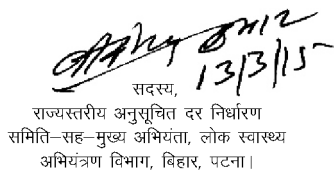 कुमार
13/3/15
सदस्य,
राज्यस्तरीय अनुसूचित दर निर्धारण
समिति-सह-मुख्य अभियंता, लोक स्वास्थ्य
अभियंत्रण विभाग, बिहार, पटना।